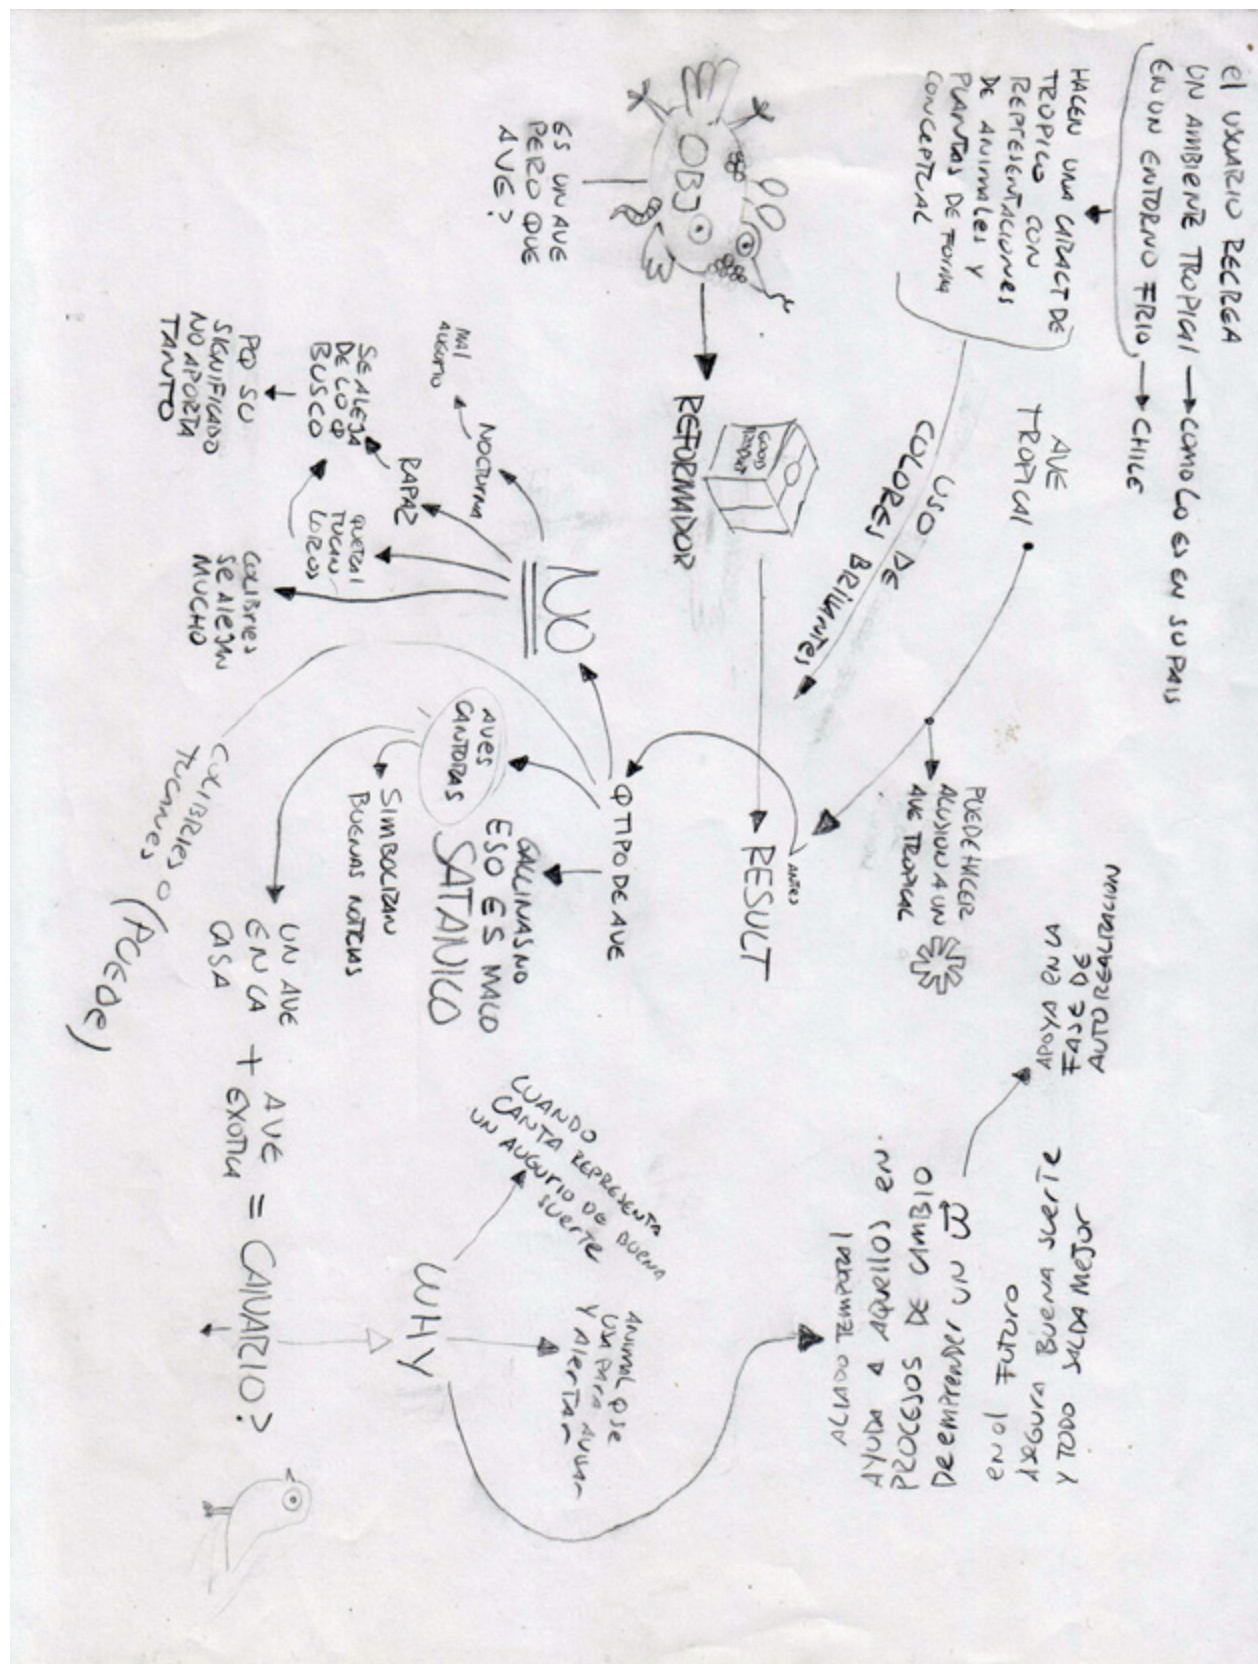 el USUARIO RECREA
UN AMBIENTE TROPICAL → COMO LO ES EN SU PAIS
EN UN ENTORNO FRIO → CHILE
HACEN UNA CARACT DE
TROPICO CON
REPRESENTACIONES
DE ANIMALES Y
PLANTAS DE FORMA
CONCEPTUAL
AVE
TROPICAL
USO DE
COLORES BRILLANTES
PUEDE HACER
ALUSION A UN
AVE TROPICAL
OBJ
ES UN AVE
PERO QUE
AVE?
REFORMADOR
GOOD
ANTES
RESULT
Q TIPO DE AVE
NO
NOCTURNA
MAL
AUGURIO
RAPAZ
SE ALEJA
DE LO Q
BUSCO
PQ SU
SIGNIFICADO
NO APORTA
TANTO
QUETZAL
TUCAN
LOROS
COLIBRIES
SE ALEJAN
MUCHO
AVES
CANTORAS
GALLINAS NO
ESO ES MALO
SATANICO
SIMBOLIZAN
BUENAS NOTICIAS
COLIBRIES O
TUCANES
(PUEDE)
UN AVE
EN LA
CASA
+
AVE
EXOTICA
= CANARIO?
WHY
CUANDO
CANTA REPRESENTA
UN AUGURIO DE BUENA
SUERTE
ANIMAL Q SE
USA PARA AVISAR
Y ALERTAR
APOYA EN LA
FASE DE
AUTO REALIZACION
TEMPORAL
AYUDA A AQUELLOS EN
PROCESOS DE CAMBIO
De emprender UN
en el FUTURO
ASEGURA BUENA SUERTE
Y TODO SALDA MEJOR